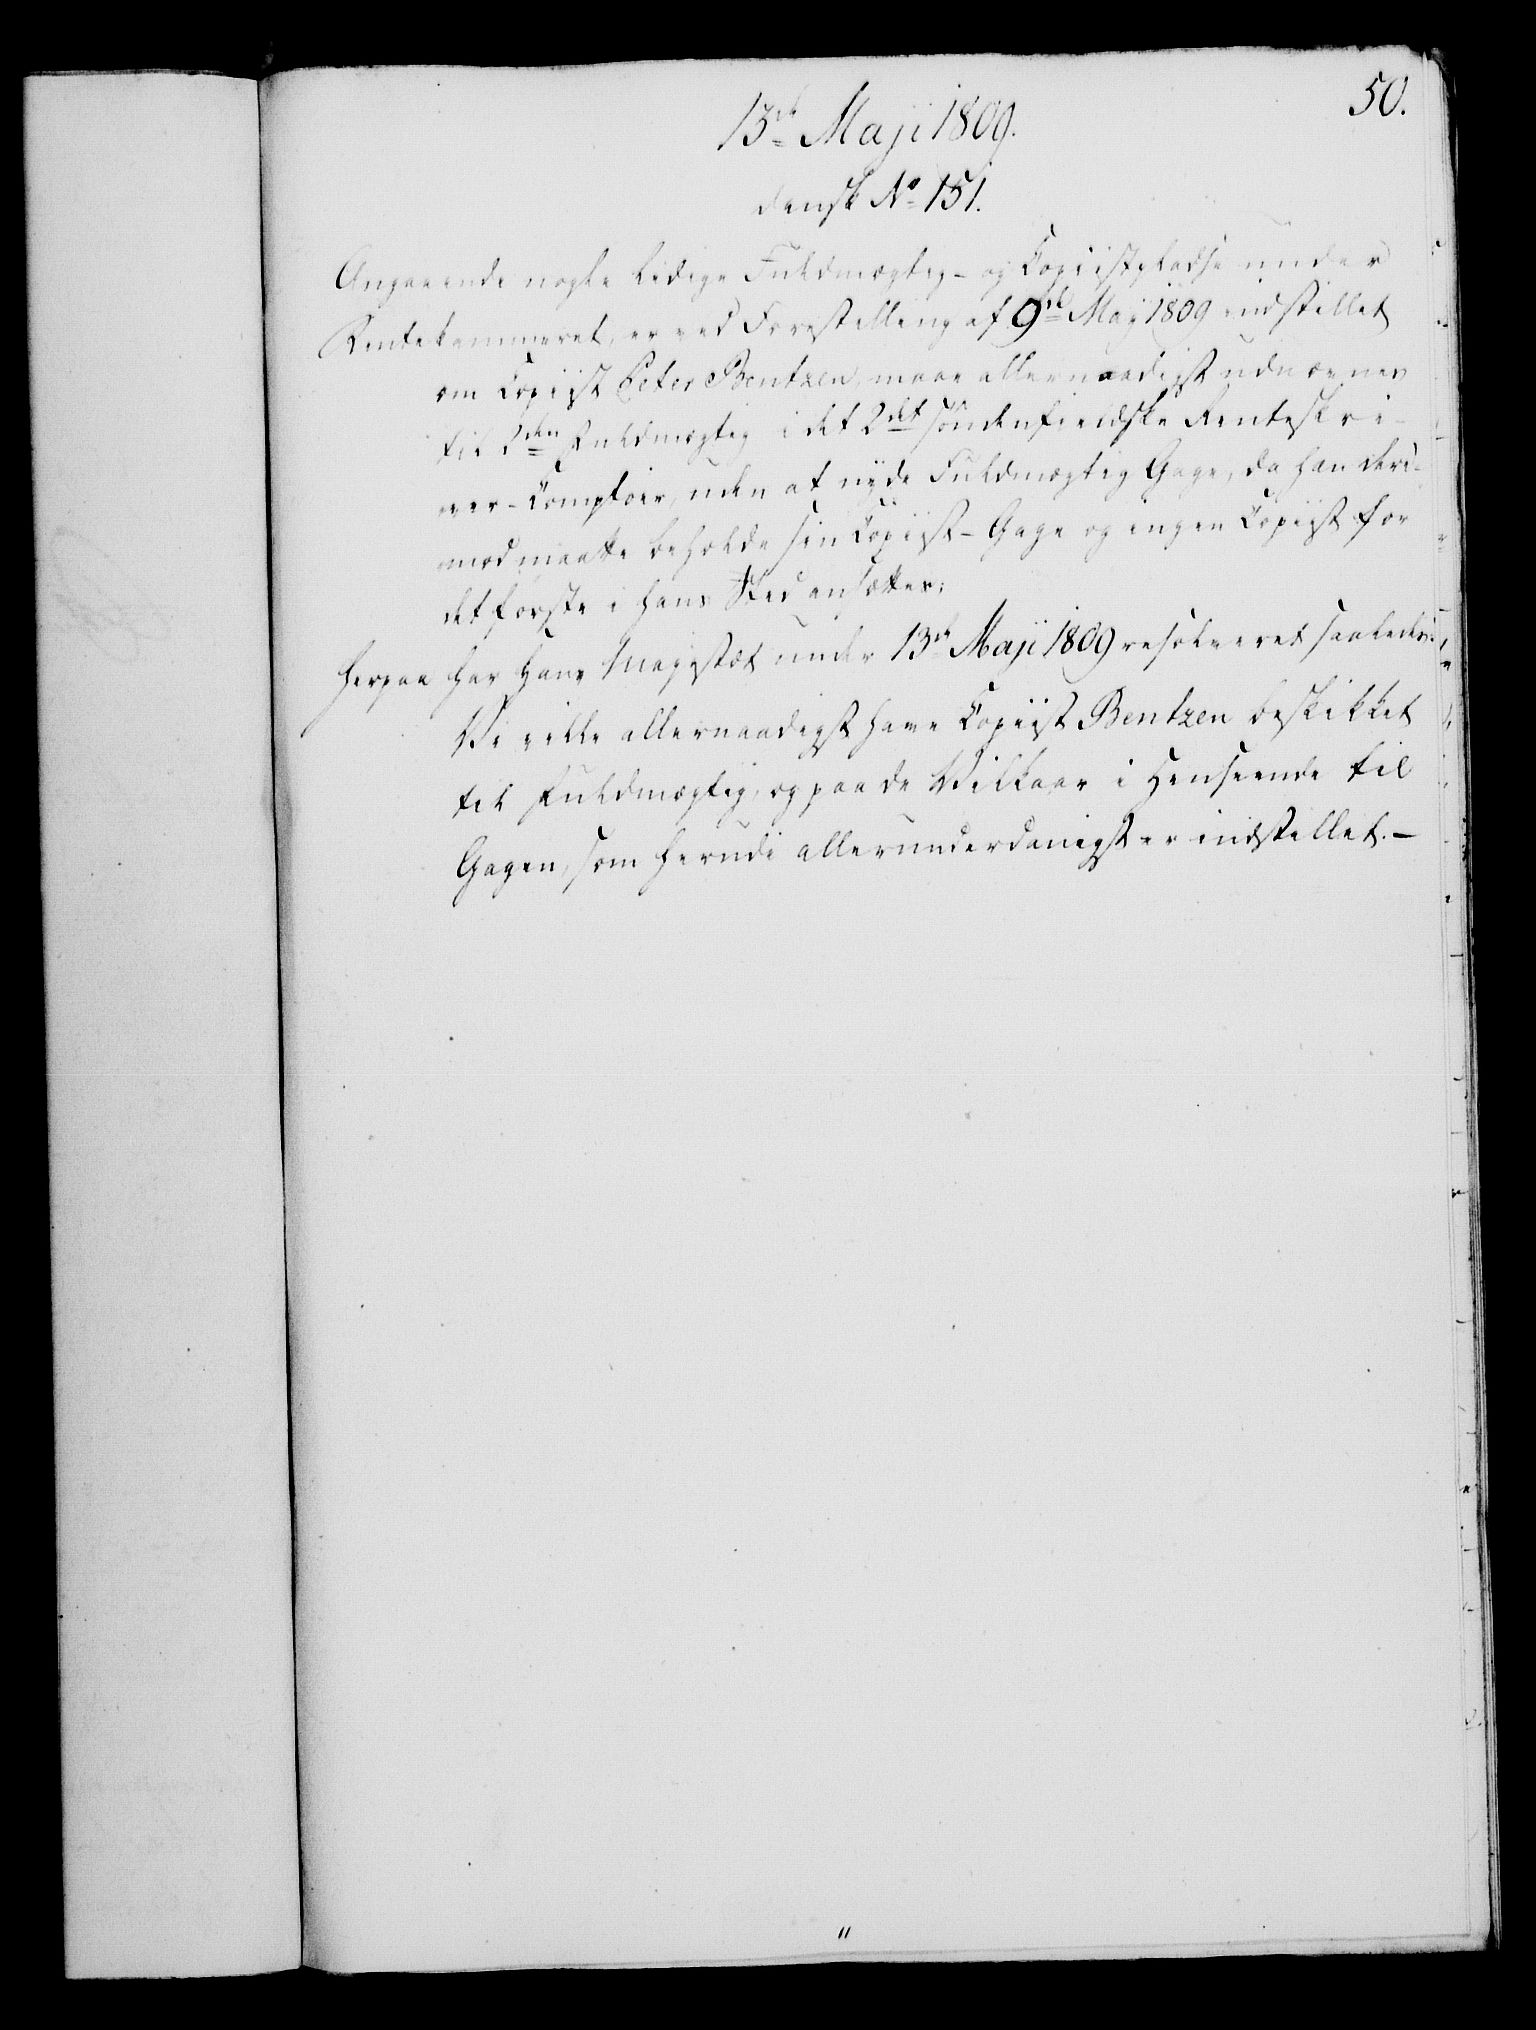 50.
13de Maji 1809.
dansk No 151.
Angaaende nogle ledige Fuldmægtig- og Copiistpladse under
Rentekammeret, er ved Forestilling af 9de Maij 1809 indstillet
om Copiist Peter Bentzen, maae allernaadigst udnævnes
til 2den Fuldmægtig i det 2det Søndenfieldske Renteskri-
ver-Comptoir, uden at nyde Fuldmægtig Gage, da han deri-
mod maatte beholde sin Copiist-Gage og ingen Copiist for
det første i hans Sted ansættes;
herpaa har Hans Majestæt under 13de Maji 1809 resolveret saaledes:
Vi ville allernaadigst have Copiist Bentzen beskikket
til Fuldmægtig, og paa de Vilkaar i Henseende til
Gagen, som herudi allerunderdanigst er indstillet. –